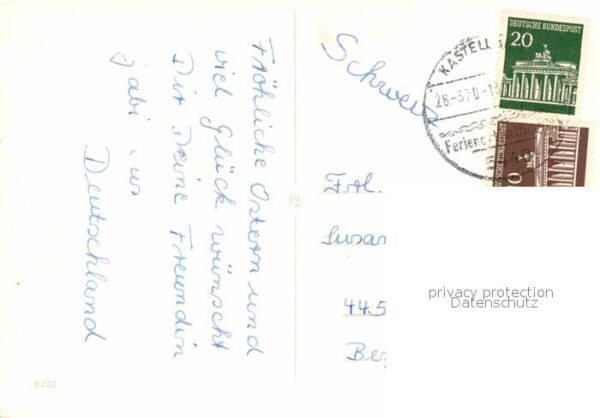 Fröhliche Ostern und
viel Glück wünscht
Dir Deine Freundin
Gabi aus
Deutschland
Schweiz
Frl.
Susan
44.5
Be
KASTELL
28.-3.70-1
Ferien
DEUTSCHE BUNDESPOST
20
DEUTSCHE BUNDESPOST
0
privacy protection
Datenschutz
6490